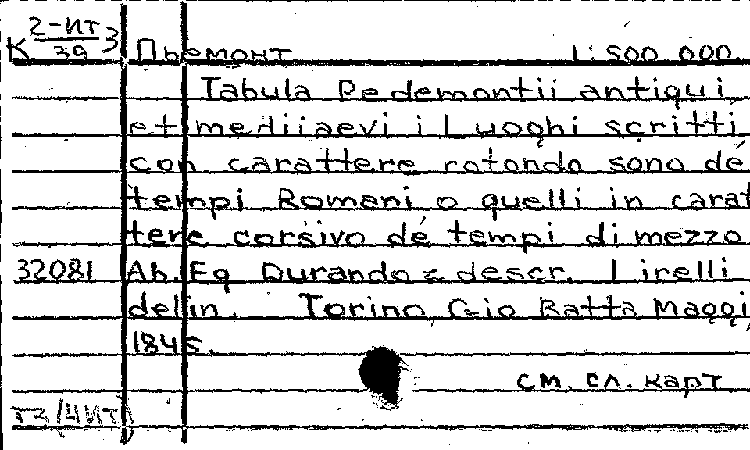 К 2-ИТ/39 3 Пьемонт 1:500 000.
Tabula Pedemontii antiqui,
et mediiaevi i Luoghi scritti,
con carattere rotondo sono dé
tempi Romani o quelli in carat
tere corsivo dé tempi di mezzo
32081 Ab. Eq Durando descr. Lirelli
delin. Torino, Gio Batta Maggi,
1845.
см. сл. карт